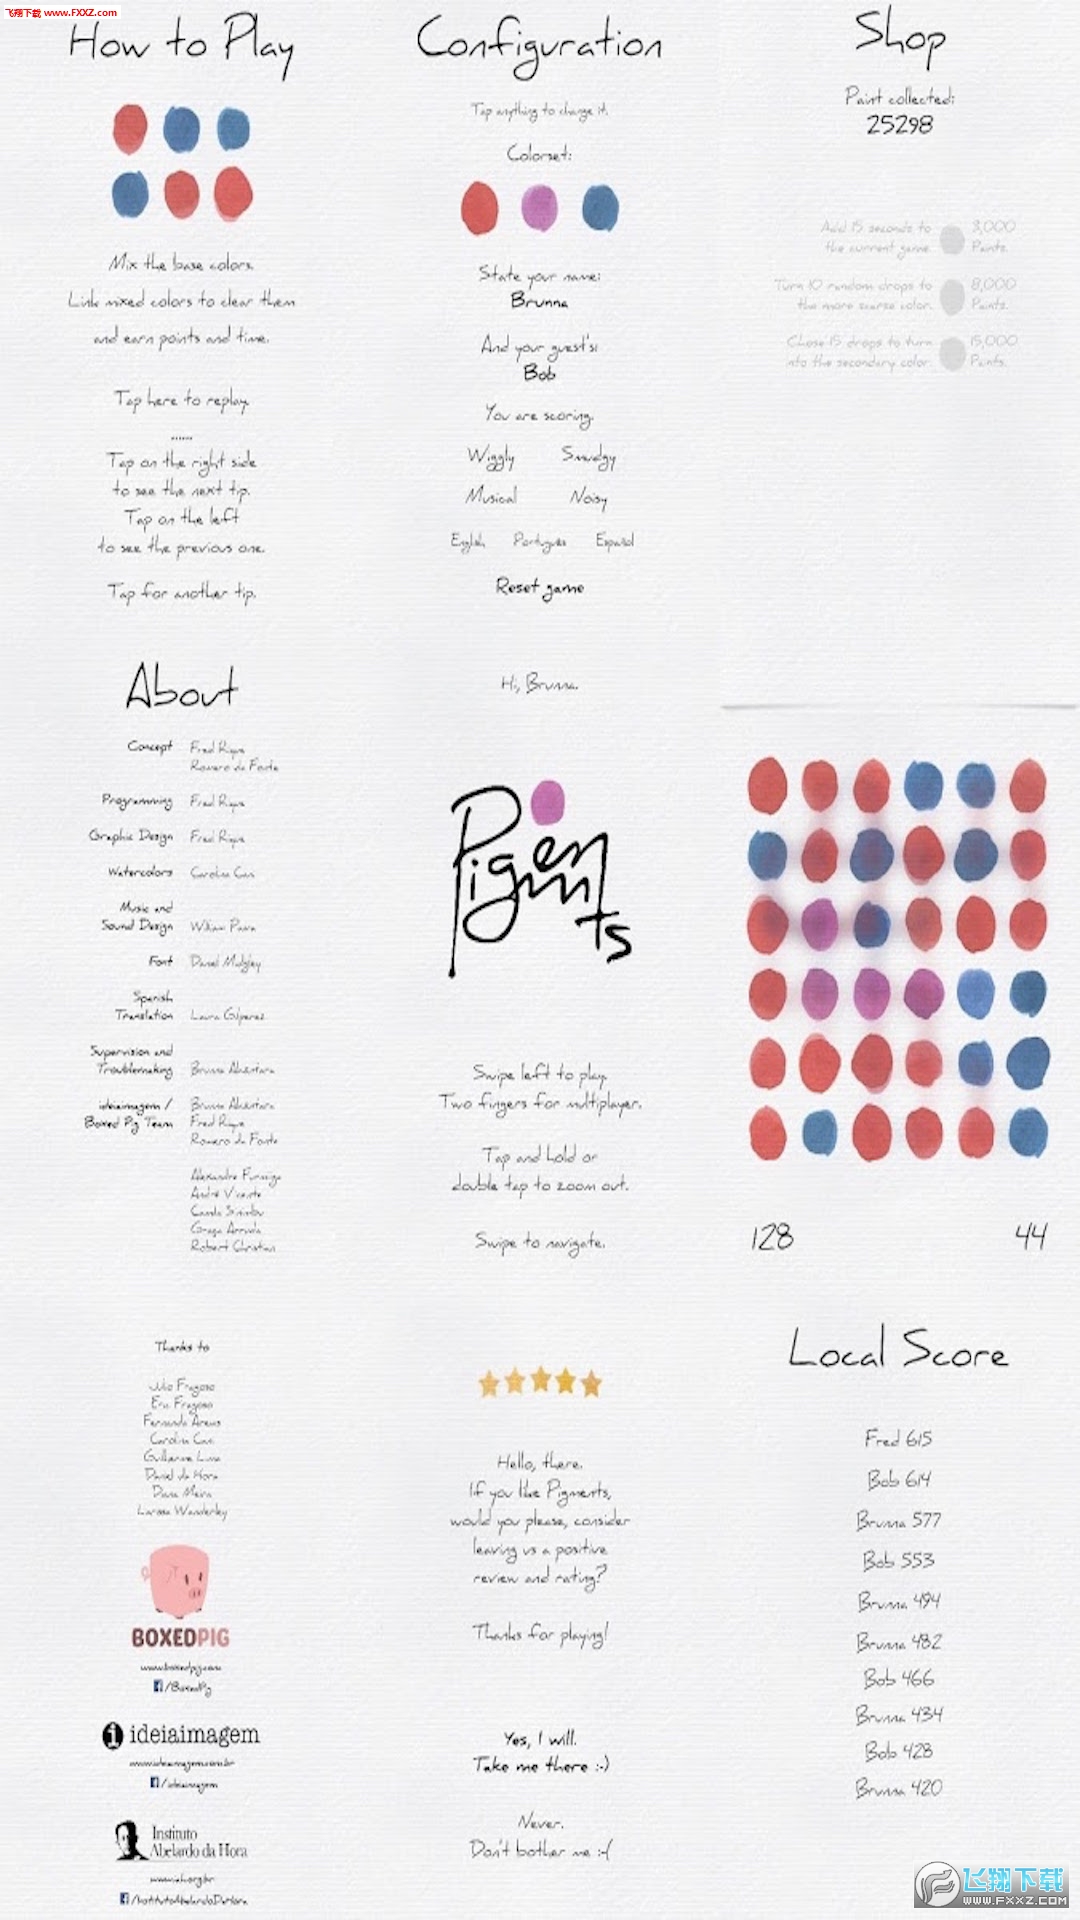 飞翔下载 www.FXXZ.com
How to Play
Mix the base colors.
Link mixed colors to clear them
and earn points and time.
Tap here to replay.
......
Tap on the right side
to see the next tip.
Tap on the left
to see the previous one.
Tap for another tip.
Configuration
Tap anything to change it.
Colorset:
State your name:
Brunna
And your guest's:
Bob
You are scoring.
Wiggly Smudgy
Musical Noisy
English Português Español
Reset game
Shop
Paint collected:
25298
Add 15 seconds to
the current game.
3,000
Paints.
Turn 10 random drops to
the more scarse color.
8,000
Paints.
Chose 15 drops to turn
into the secondary color.
15,000
Paints.
About
Concept Fred Rique
Romero da Fonte
Programming Fred Rique
Graphic Design Fred Rique
Watercolors Carolina
Music and
Sound Design William
Font Daniel Midgley
Spanish
Translation Laura
Supervision and
Troublemaking Brunna Alcântara
ideiaimagem / Brunna Alcântara
Boxed Pig Team Fred Rique
Romero da Fonte
Alexandre
André Vicente
Camila
Graça Arruda
Robert Christian
Hi, Brunna.
Pigments
Swipe left to play.
Two fingers for multiplayer.
Tap and hold or
double tap to zoom out.
Swipe to navigate.
128 44
Thanks to
Julio Fragoso
Fragoso
Fernando
Carolina
Guilherme Lima
Daniel da Hora
Diana Meira
Larissa Wanderley
BOXEDPIG
www.boxedpig.com
/BoxedPig
ideiaimagem
www.ideiaimagem.com.br
/ideiaimagem
Instituto
Abelardo da Hora
/InstitutoAbelardoDaHora
Hello, there.
If you like Pigments,
would you please, consider
leaving us a positive
review and rating?
Thanks for playing!
Yes, I will.
Take me there :-)
Never.
Don't bother me :-(
Local Score
Fred 615
Bob 614
Brunna 577
Bob 553
Brunna 494
Brunna 482
Bob 466
Brunna 434
Bob 428
Brunna 420
飞翔下载
WWW.FXXZ.COM